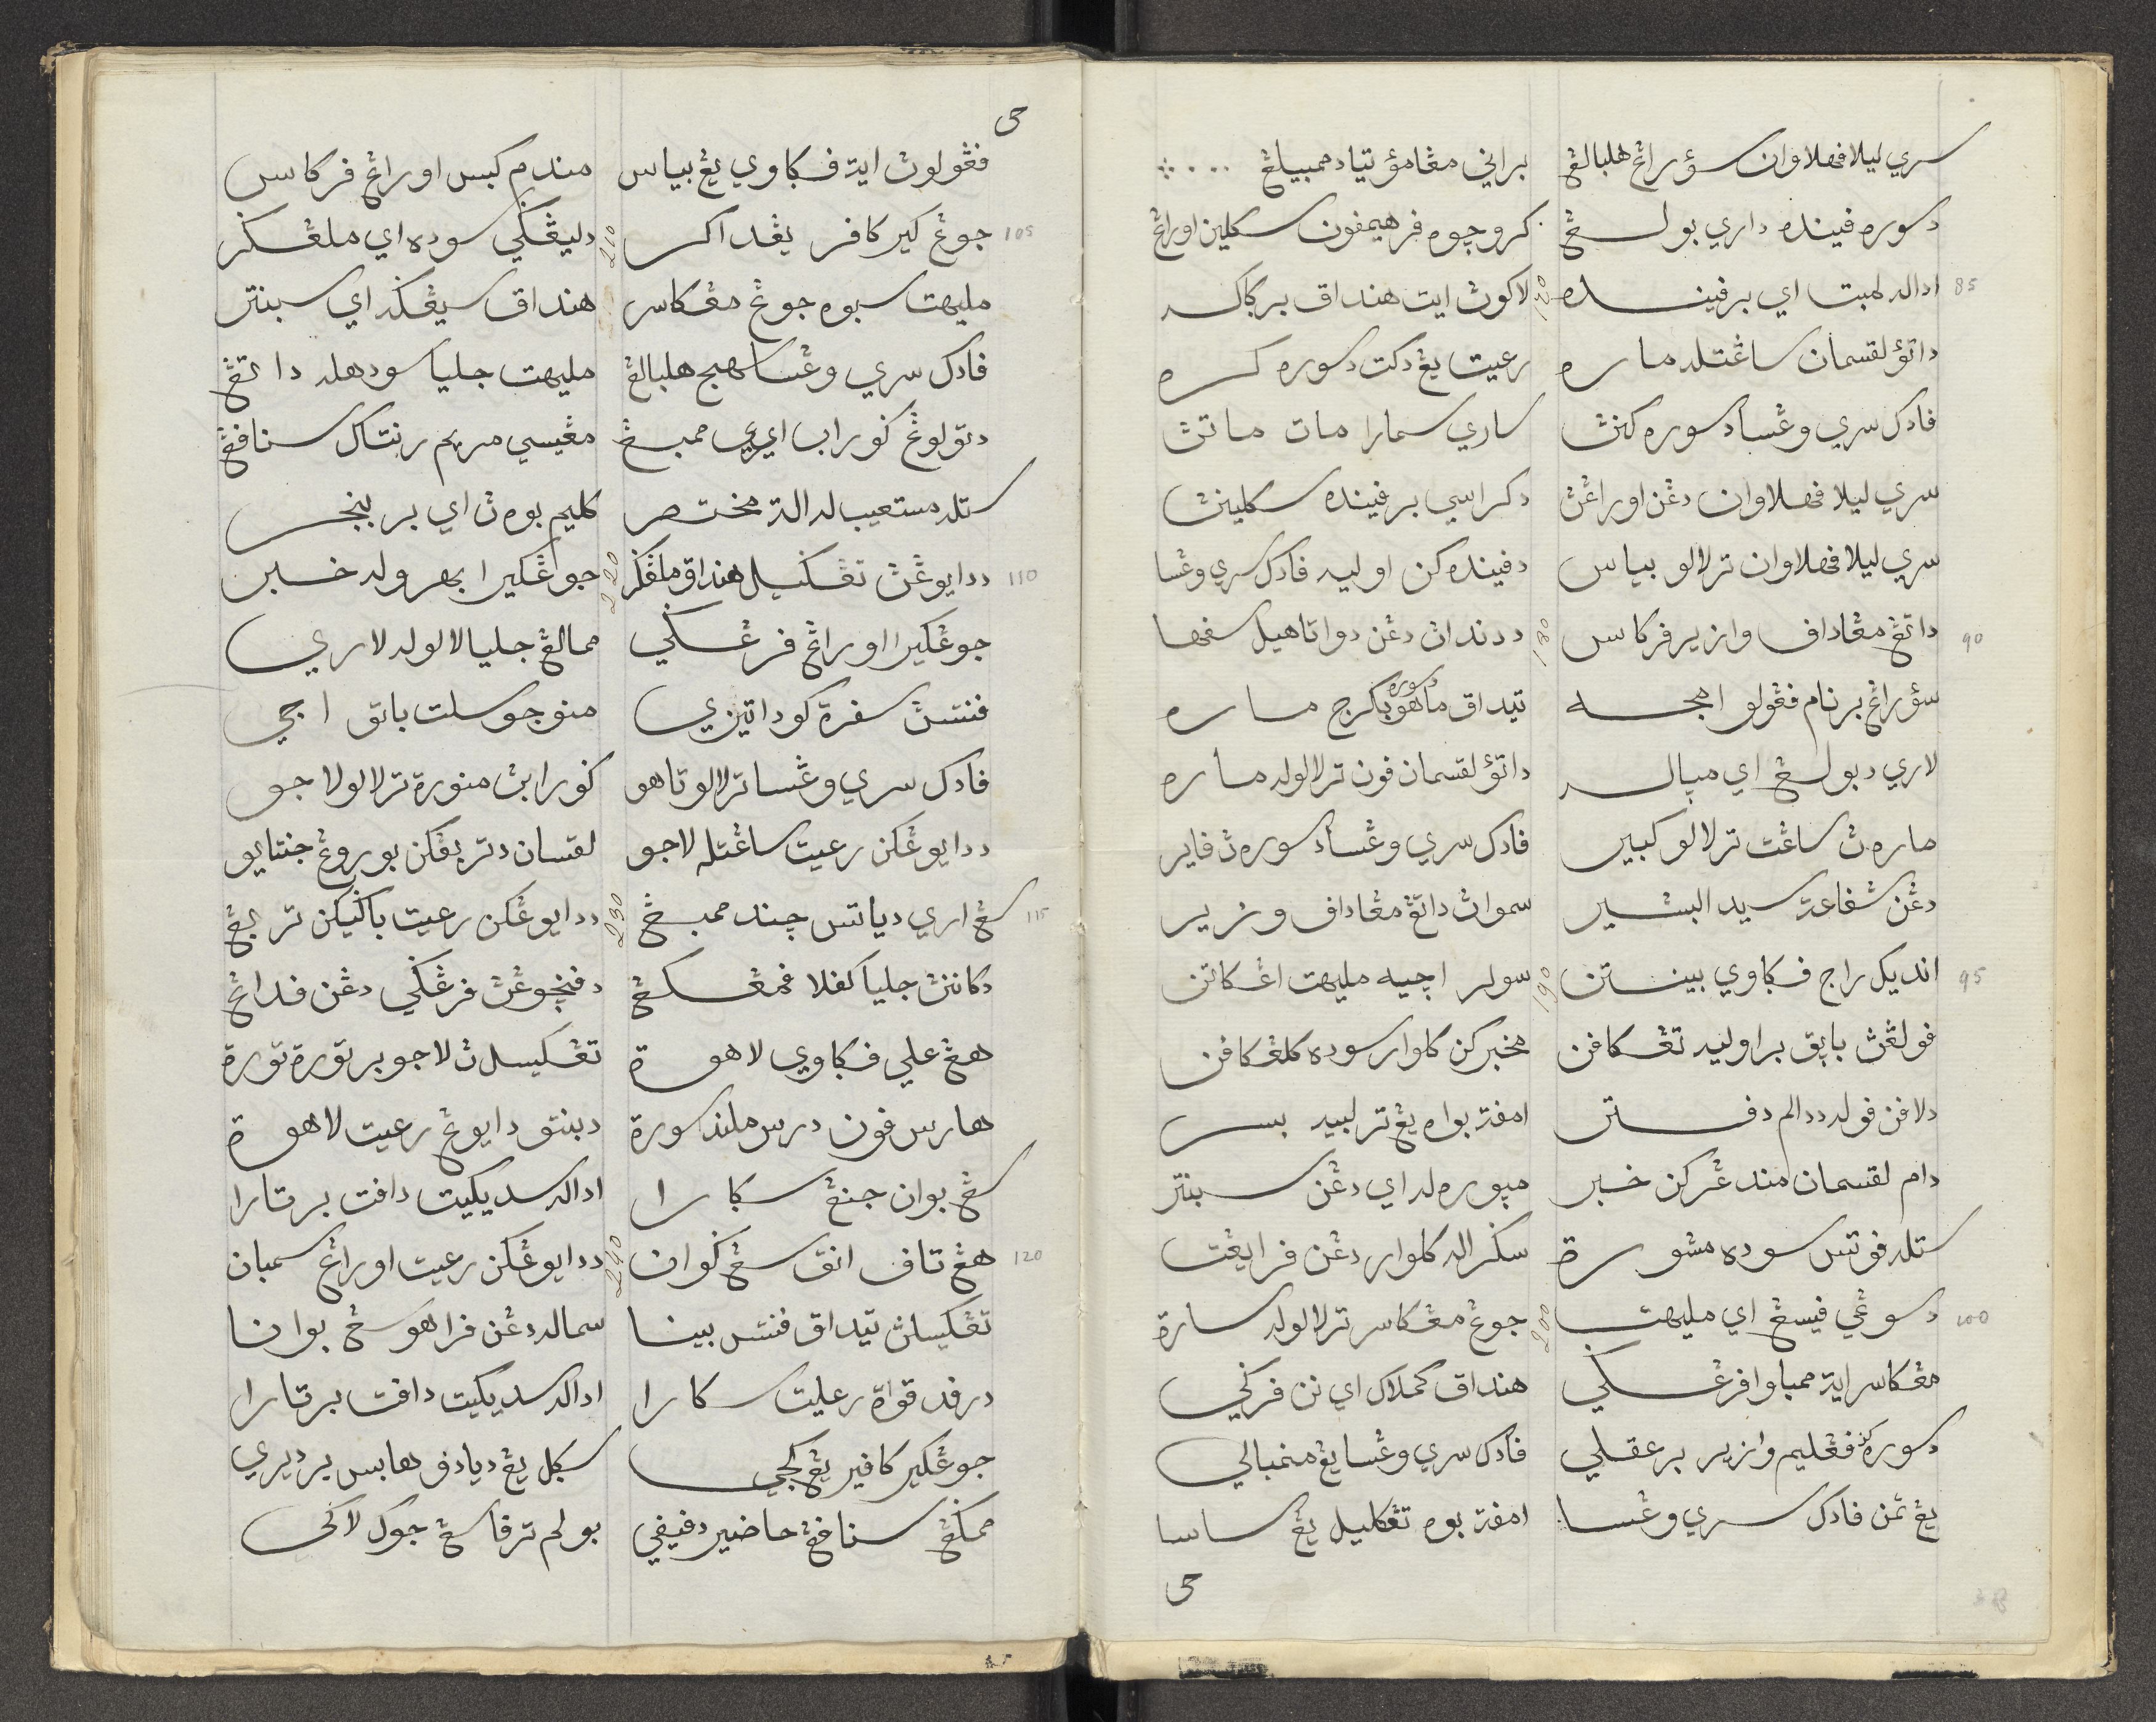 سري ليلا فهلاوان سؤرڠ هلبالڠ براني مڠامؤ تياد ممبيلڠ
دسوره فينده داري بولڠ كروچوه فرهيمفونن سكلين اورڠ
85 اداله لمبت اي برفينده 170 لاكوڽ ايت هنداق برباك
داتؤ لقسمان ساڠتله ماره رعيت يڠ دكت دسوره كره
فادك سري وڠسا دسوره كنڽ ساري سمارا مات ماتڽ
سري ليلا فهلاوان دڠن اورڠڽ دكراسي برفينده سكلينڽ
سري ليلا فهلاوان ترلالو بياس دفيندهكن اوليه فادك سري وڠسا
90 داتڠ مڠاداف وازير فركاس 180 ددندان دڠن دوا تاهيل سفها
سؤرڠ برنام فڠولو امجه تيداق ماهو دسوره بكرج ماره
لاري دبولڠ اي مپاله داتؤ لقسمان فون ترلالوله ماره
مارهڽ ساڠت ترلالو كبير فادك سري وڠسا دسورهڽ فاير
دڠن شفاعة سيد البشير سمواڽ داتڠ مڠاداف وزير
95 انديك راج فكاوي بينتن 190 سولر اچيه مليهت اڠكاتن
فولڠڽ بايق براوليه تڠكافن مخبركن كلوار سوده كلڠكافن
دلافن فوله ددالم دفتر امفت بواه يڠ ترلبيه بسر
دام لقسمان مندڠركن خبر مپورهله اي دڠن سبنتر
ستله فوتس سوده مشورة سڬراله كلوار دڠن فرايڠت
100 دسوڠي فيسڠ اي مليهت 200 جوڠ مڠكاسر ترلالوله سارة
مڠكاسر ايت ممباوا فرڠڬي هنداق كملاك اي نن فركي
دسورهكن فڠليم وازير برعقلي فادك سري وڠسا يڠ منمبالي
يڠ تمن فادك سري وڠسا امفت بوه تڠكيل يڠ ساسا
ڤڠولوڽ ايت فكاوي يڠ بياس مندم كبس اورڠ فركاس
105 جوڠ كير كافر يڠد اكر 210 دليڠكي سوده اي ملڠكر
مليهت سبوه جوڠ مڠكاسر هنداق سيڠكه اي سبنتر
فادك سري وڠسا هلبالڠ مليهت جليا سودهله داتڠ
دتولوڠ كوراب اي ممبڠ مڠيسي مريم رنتاكا سنافڠ
ستله مستعيبله الة مختصر كليم بوهڽ اي بر
110 ددايوڠڽ تڠكيل هنداق ملڠكر 220 جوڠكير ابهروله خبر
جوڠكير اورڠ فرڠڬي ممالڠ جليا لالوله لاري
فنتسڽ سفرة كودا تيزي منوجو سلت باتق اجي
فادك سري وڠسا ترلالو تاهو كورابڽ منورة ترلالو لاجو
ددايوڠكن رعيت ساڠتله لاجو لقسان دتربڠكن بوروڠ جنتايو
115 سڠ اري دياتس چند ممبڠ 230 ددايوڠكن رعيت باڬيكن تربڠ
دكاننڽ جليا كفلا دفنجوڠڽ فرڠڬي دڠن فداڠ
هڠ علي فكاوي لاهوة تڠكيسلڽ لاجو برتورة تورة
هارس فون درس ملند سورة دبنتو دايوڠ رعيت لاهوة
سڠ بوان جنتڠ سكارا اداله سديكيت دافت برتارا
120 هڠ تاف انق سڠ ڬوان 240 ددايوڠكن رعيت اورڠ سمبان
تڠكيسلڽ تيداق فنتس بينا سماله دڠن فراهو سڠ بوانا
درفد قواة رعيت سكارا اداله سديكيت دافت برتارا
جوڠكير كافير يڠ كجي سكل يڠ دياداف هابس برديري
ممڬڠ سنافڠ حاضير دفيفي بولم ترفاسڠ جوك لاكي